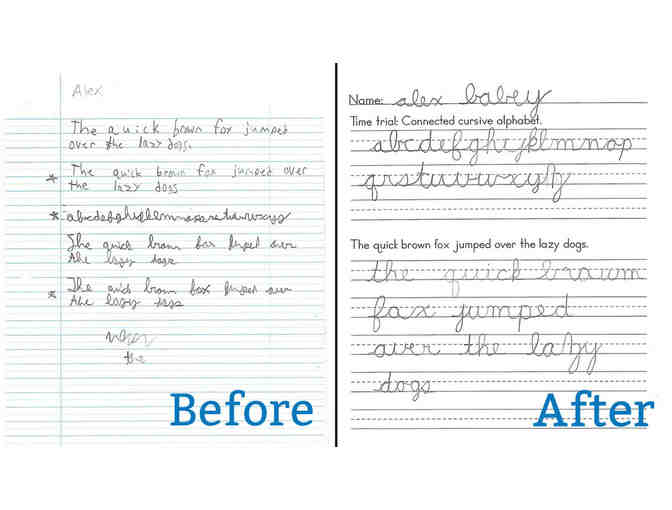 Alex
The quick brown fox jumped
over the lazy dogs.
* The quick brown fox jumped over
the lazy dogs
* abcdefghijklmnopqrstuvwxyz
The quick brown fox jumped over
the lazy dogs
* The quick brown fox jumped over
the lazy dogs
the
Before
Name: alex babey
Time trial: Connected cursive alphabet.
abcdefghijklmnop
qrstuvwxyz
The quick brown fox jumped over the lazy dogs.
the quick brown
fox jumped
over the lazy
dogs
After